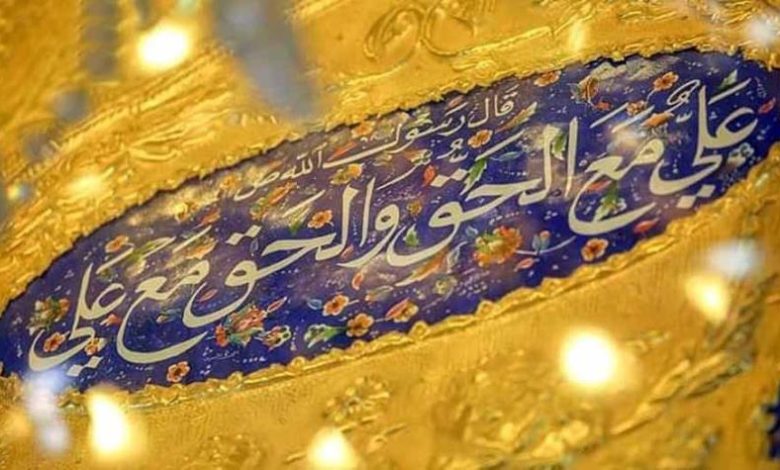 قال رسول الله ص
علي مع الحق والحق مع علي